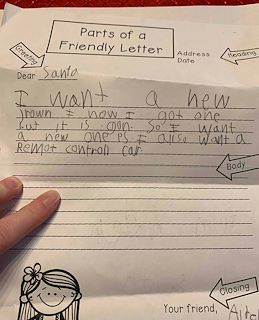 Parts of a
Friendly Letter
Greeting
Address
Date
Heading
Dear Santa
I want a new
I now I got one
but it is gon. So I want
a new one PS I allso want a
Remot controll car.
Body
Closing
Your friend,